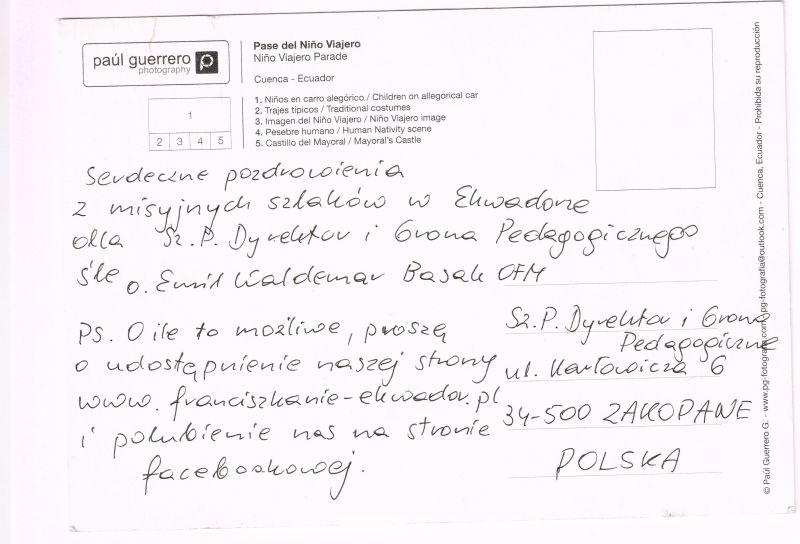 paúl guerrero
photography
Pase del Niño Viajero
Niño Viajero Parade
Cuenca - Ecuador
1
2 3 4 5
1. Niños en carro alegórico / Children on allegorical car
2. Trajes típicos / Traditional costumes
3. Imagen del Niño Viajero / Niño Viajero image
4. Pesebre humano / Human Nativity scene
5. Castillo del Mayoral / Mayoral's Castle
Serdeczne pozdrowienia
z misyjnych szlaków w Ekwadorze
dla Sz. P. Dyrektor i Grona Pedagogicznego
śle o. Emil Waldemar Basak OFM
Ps. O ile to możliwe, proszę
o udostępnienie naszej strony
www.franciszkanie-ekwador.pl
i polubienie nas na stronie
facebookowej.
Sz. P. Dyrektor i Grono
Pedagogiczne
ul. Karłowicza 6
34-500 ZAKOPANE
POLSKA
© Paúl Guerrero G. - www.pg-fotografia.com - pg-fotografia@outlook.com - Cuenca, Ecuador - Prohibida su reproducción